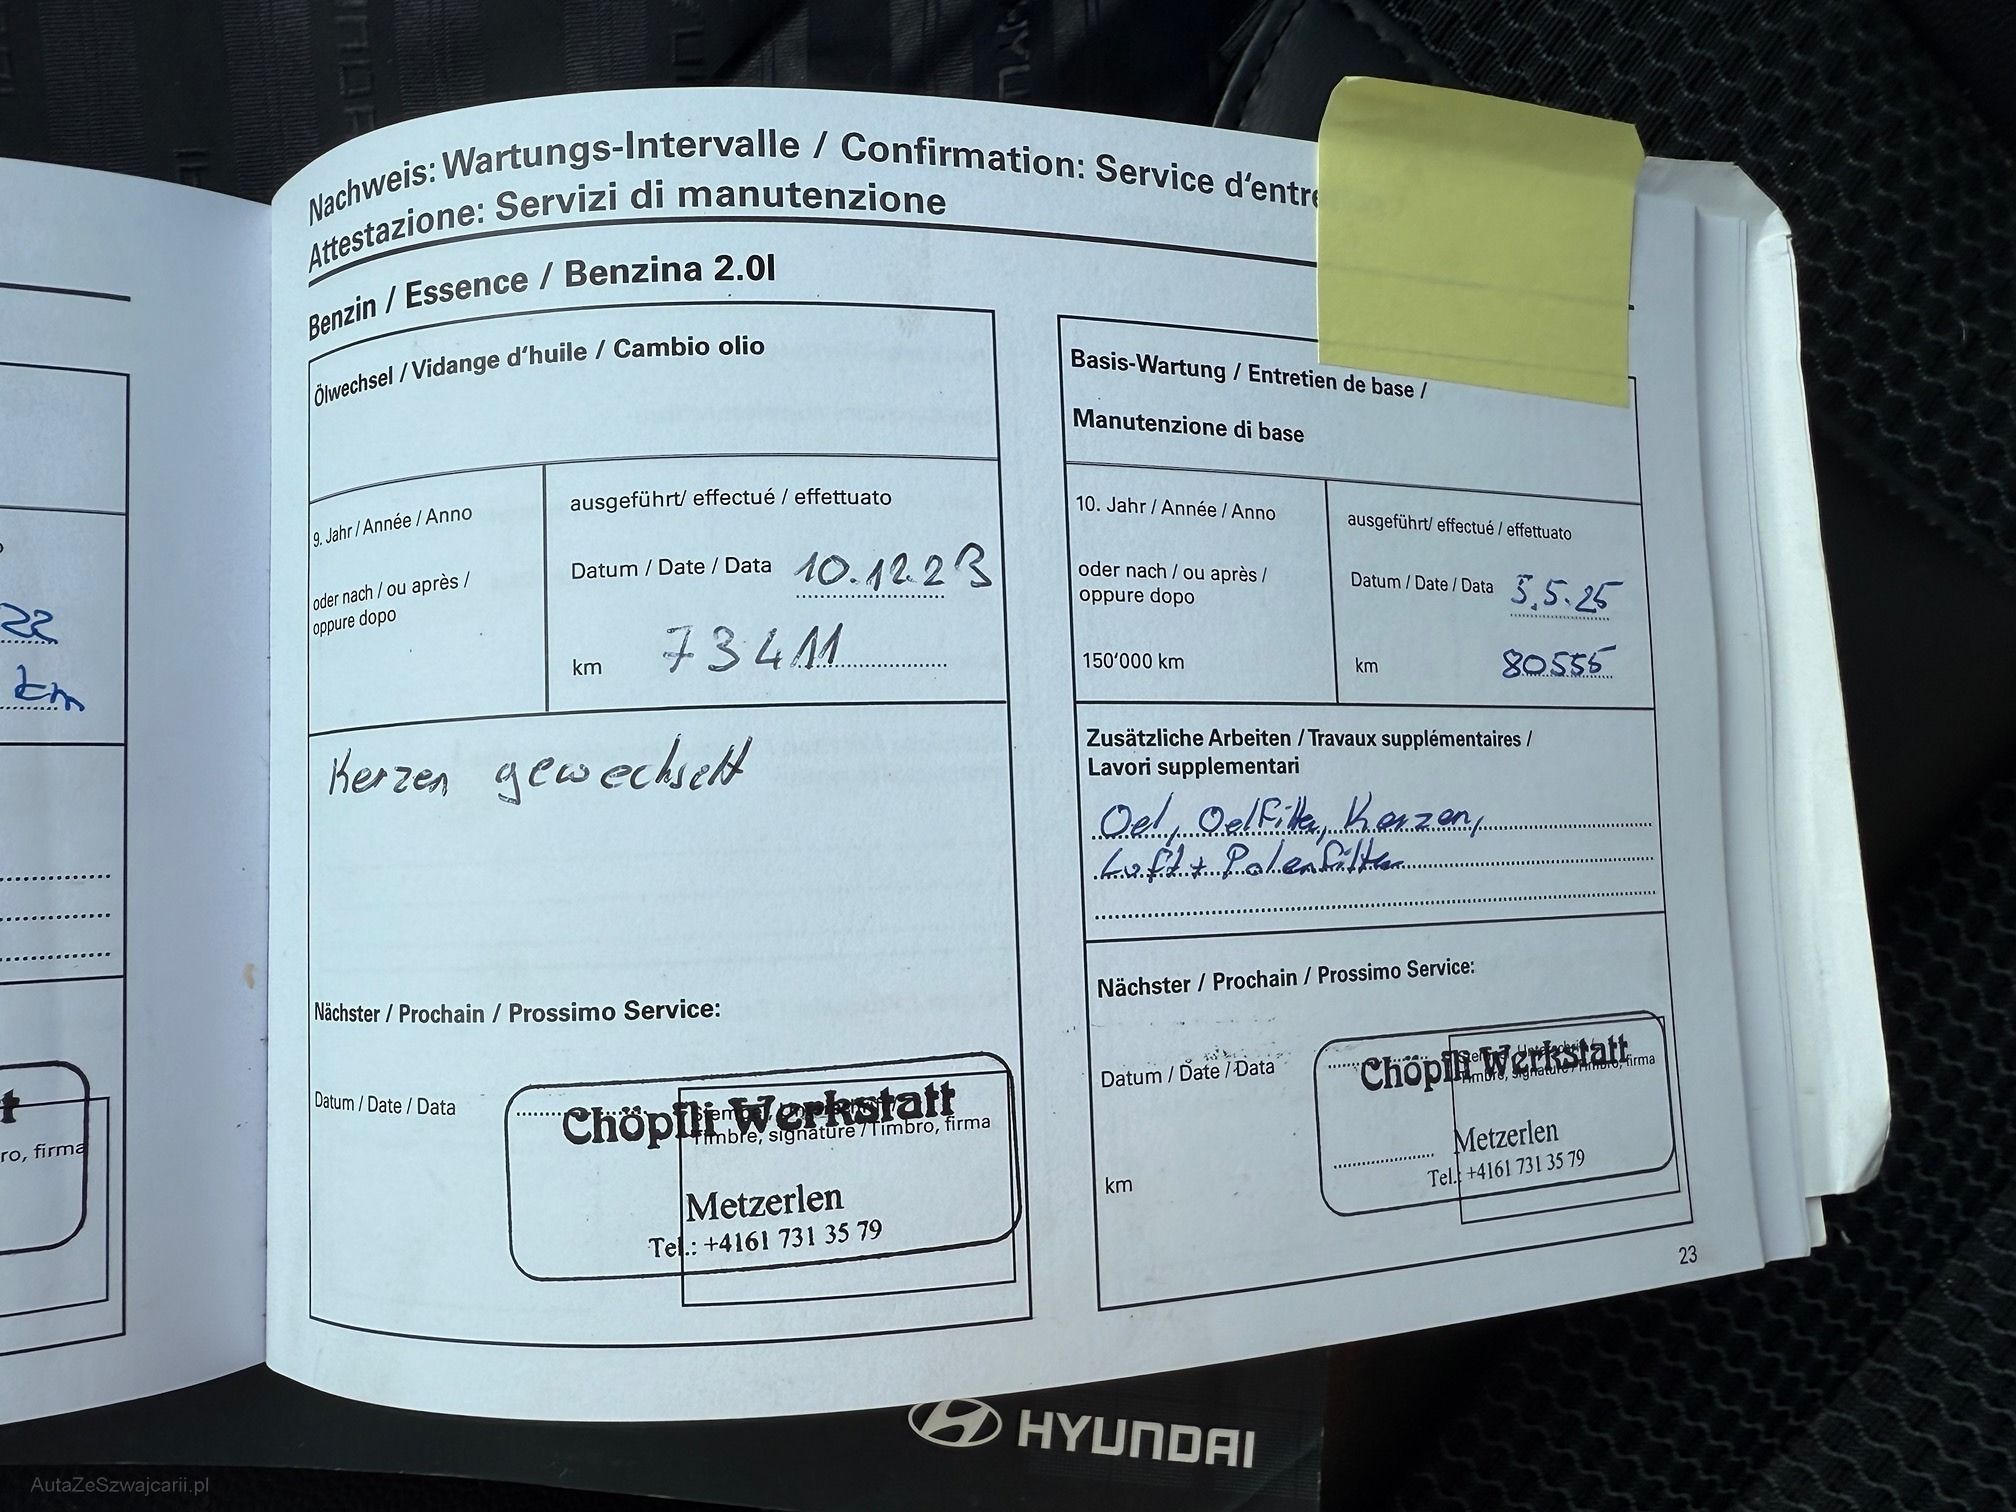 Nachweis: Wartungs-Intervalle / Confirmation: Service d'entre
Attestazione: Servizi di manutenzione
Benzin / Essence / Benzina 2.0l
22
km
ro, firma
Ölwechsel / Vidange d'huile / Cambio olio
9. Jahr / Année / Anno
oder nach / ou après /
oppure dopo
ausgeführt/ effectué / effettuato
Datum / Date / Data 10.12.23
km 73411
Kerzen gewechselt
Nächster / Prochain / Prossimo Service:
Datum / Date / Data
Chöpfli Werkstatt
Timbre, signature / Timbro, firma
Metzerlen
Tel.: +4161 731 35 79
Basis-Wartung / Entretien de base /
Manutenzione di base
10. Jahr / Année / Anno
oder nach / ou après /
oppure dopo
150'000 km
ausgeführt/ effectué / effettuato
Datum / Date / Data 5.5.25
km 80555
Zusätzliche Arbeiten / Travaux supplémentaires /
Lavori supplementari
Oel, Oelfilter, Kerzen,
Luft + Polenfilter
Nächster / Prochain / Prossimo Service:
Datum / Date / Data
km
Chöpfli Werkstatt
Timbre, signature / Timbro, firma
Metzerlen
Tel.: +4161 731 35 79
23
HYUNDAI
AutaZeSzwajcarii.pl